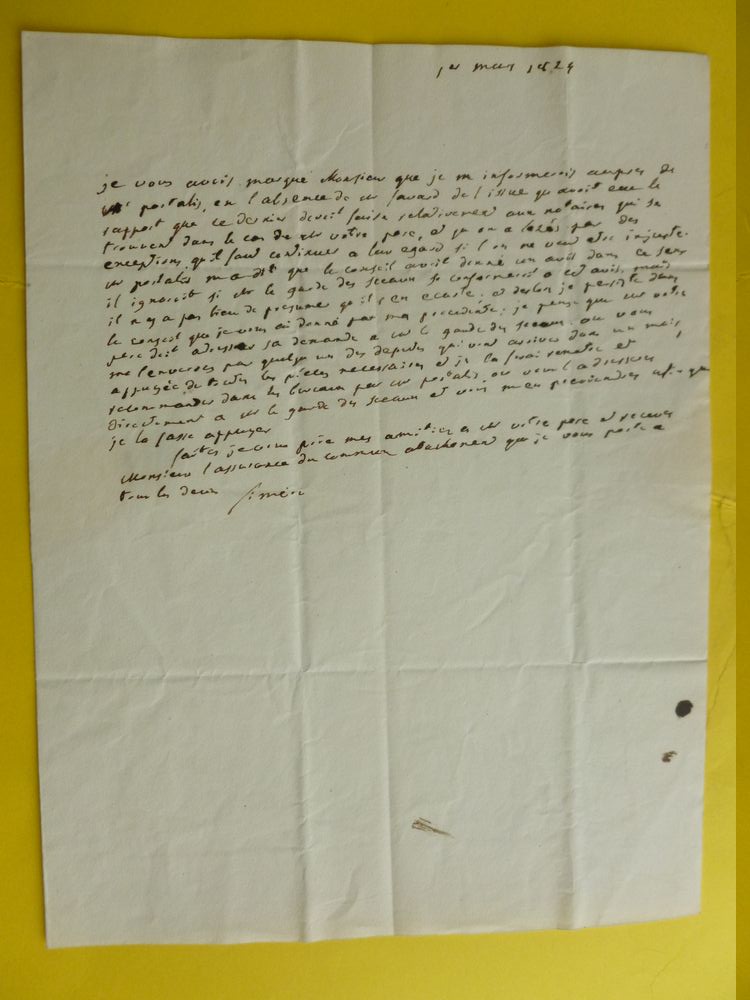 1er mars 1824
je vous avois marqué Monsieur que je m informerois aupres de
Mr portalis, en l'absence de mr favard de l'issue qu avoit eue le
rapport que ce dernier devoit faire relativement aux notaires qui se
trouvent dans le cas de mr votre pere, et qu on a lésés par des
exceptions qu'il faut continuer a leur egard si l'on ne veut etre injuste.
mr portalis m a dit que le conseil avoit donné un avis dans ce sens
il ignoroit si mr le garde des sceaux se conformeroit a cet avis, mais
il n y a pas lieu de presumer qu il s'en ecarte. et des lors je persiste dans
le conseil que je vous ai donné par ma precedente; je pense que mr votre
pere doit adresser sa demande a mr le garde des sceaux. ou vous
me l'enverres par quelqu un des deputés qui vont arriver dans un mois,
appuyée de toutes les pieces necessaires et je la ferai remettre et
recommander dans les bureaux par mr portalis, ou vous l adresserés
directement a mr le garde des sceaux et vous m en previendres afin que
je la fasse appuyer
faites je vous prie mes amitiés a mr votre pere et recevez
Monsieur l'assurance du commun attachement que je vous porte a
tous les deux Siméon